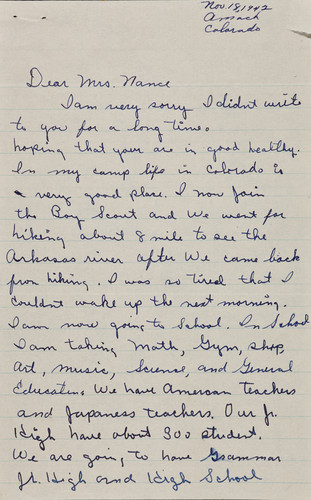 Nov 18, 1942
Amach
Colorado
Dear Mrs. Nance
I am very sorry I didnt write
to you for a long time.
hoping that your are in good healthy.
In my camp life in Colorado is
a very good place. I now join
the Boy Scout and We went for
hiking about 8 mile to see the
Arkansas river after We came back
from hiking. I was so tired that I
couldnt wake up the next morning.
I am now going to School. In School
I am taking Math, Gym, shop,
Art, music, Science, and General
Education. We have American teachers
and Japaness teachers. Our Jr.
High have about 300 student.
We are going to have Grammar
Jr. High and High School